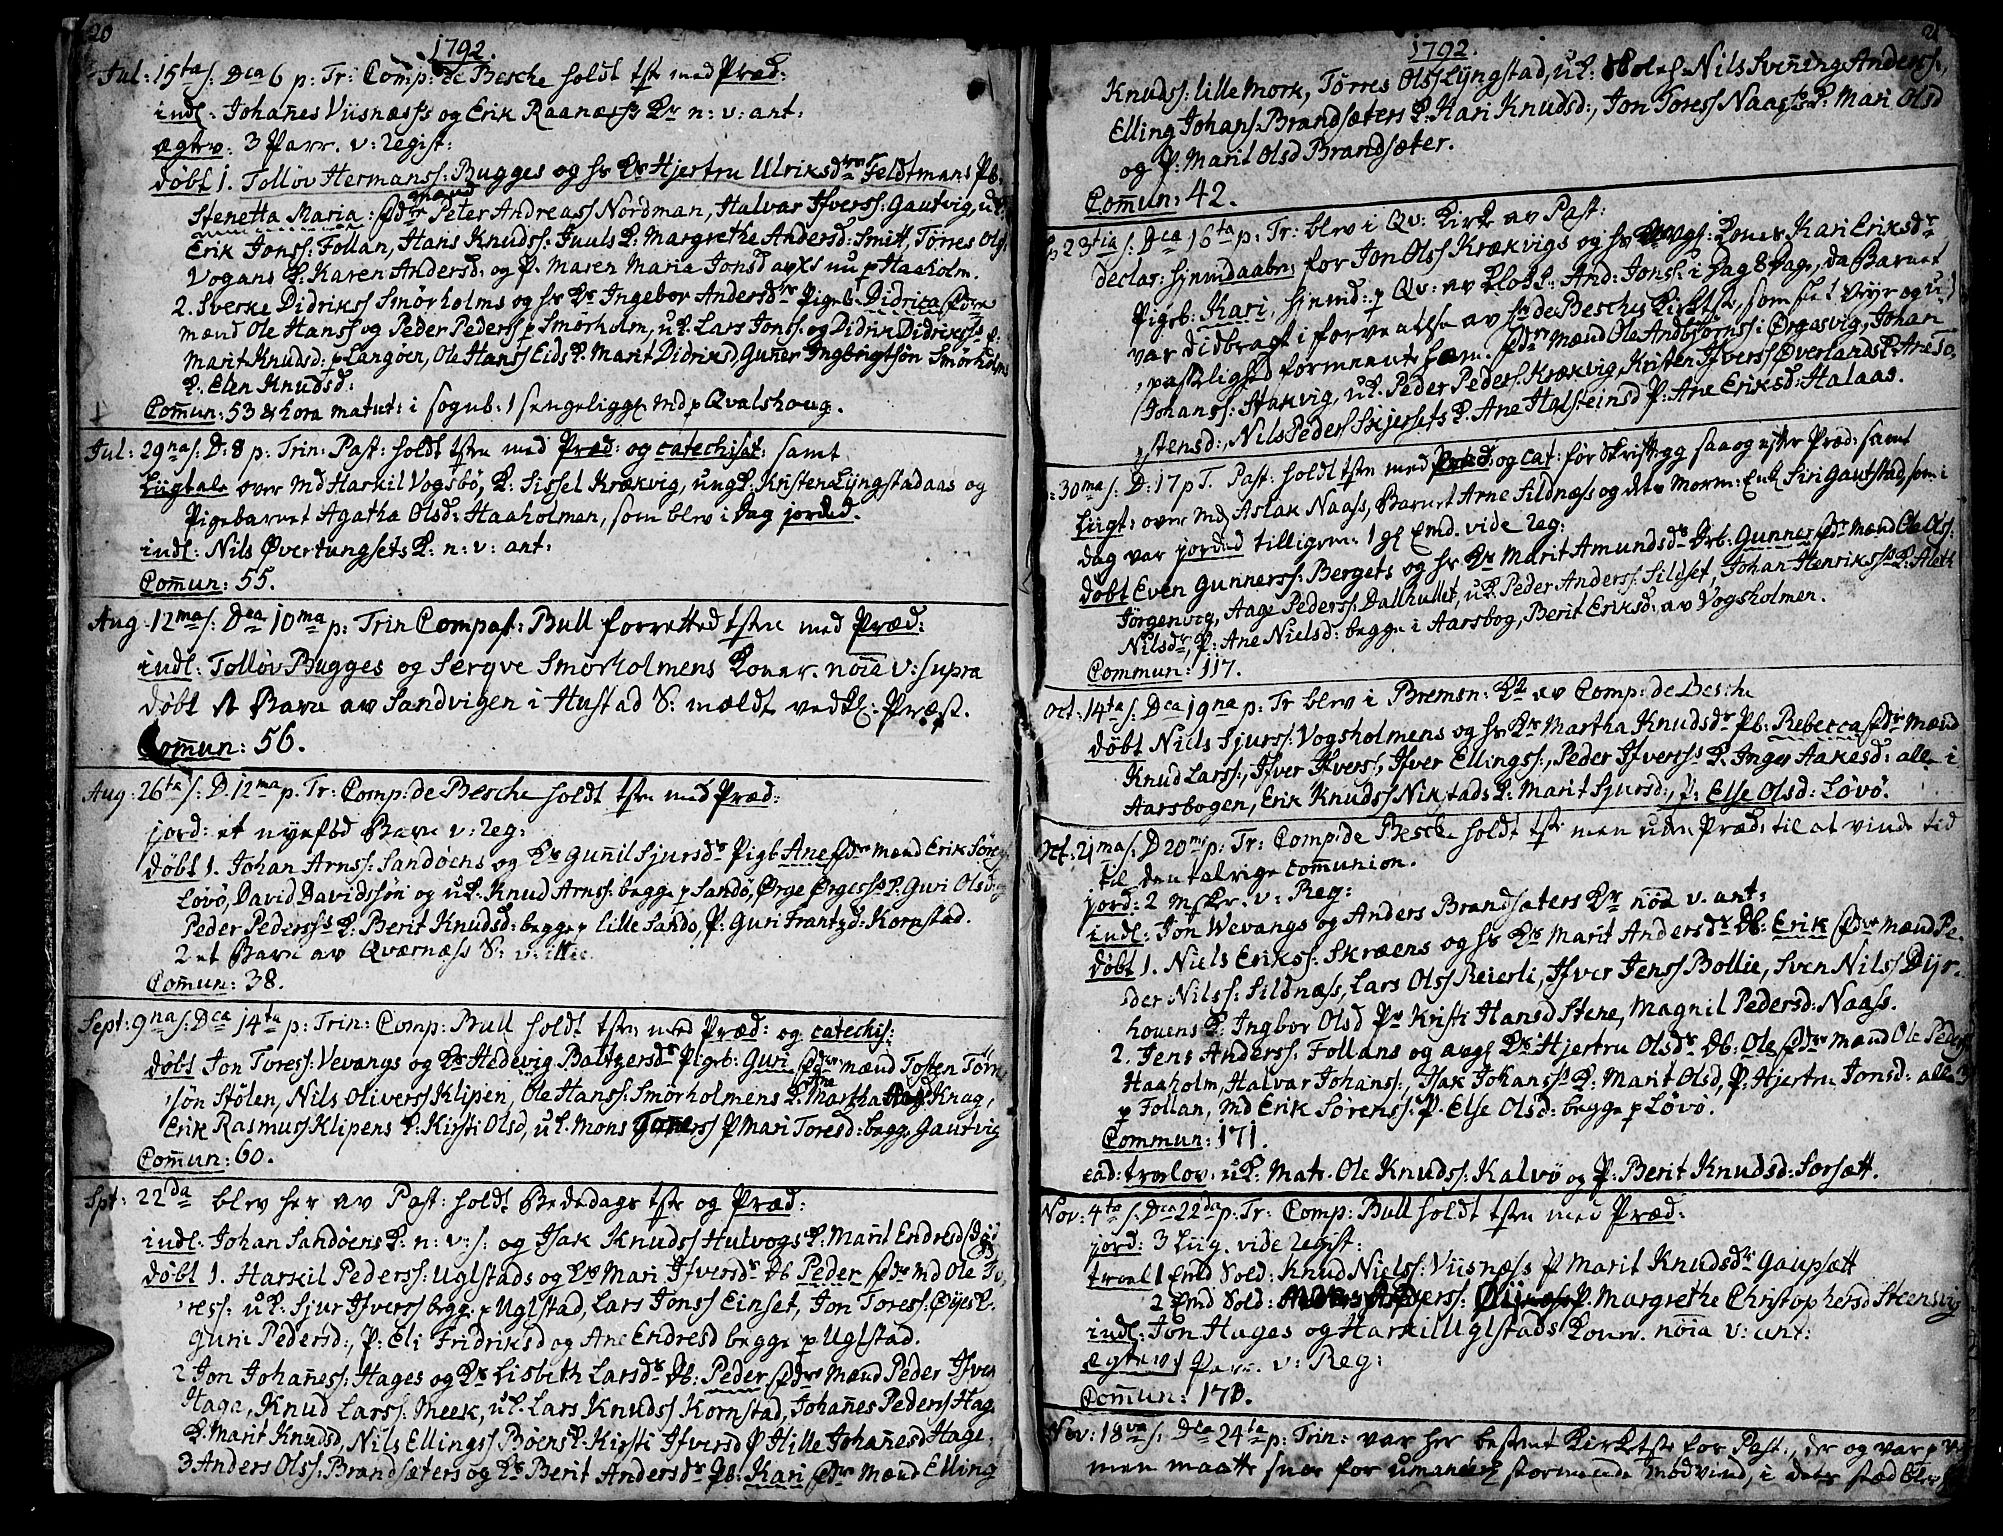 20
1792.
Jul: 15ta s: Dca 6 p: Tr: Comp: de Besche holdt tsten med Præd:
indl: Johanes Viisnæss og Erik Raanæss Kr n: v: ant:
ægtev: 3 Parr. v: Regist:
døbt 1. Tolløv Hermanss: Bugges og hs Kr Hjertru Ulriksdtr Feldtmans Pb:
Stenetta Maria: Peter Andreass Nordman, Halvar Ifverss: Gautvig, uK
Erik Jonss: Follan, Hans Knudss: Juuls K: Margrethe Andersd: Smitt, Tørres Ols
Vogans K. Karen Andersd: og P. Maren Maria Jonsd nu p Haaholm.
2. Sverke Didrikss Smørholms og hs Kr Ingebor Andersdtr Pigeb: Didrica
mænd Ole Hanss og Peder Pederss p Smørholm, uK. Lars Jonss: og Didrik Didrikss
Marit Knudsd: p Langøen, Ole Hanss Eids K. Marit Didriksd, Guner Ingbrigtsøn Smørholms
K. Elen Knudsd:
Comun: 53 & hora matut: i sognb: 1 sengeliggl md p Qvalshoug.
Jul: 29na s: D: 8 p: Trin: Past: holdt tsten med Præd: og catechiset: samt
Liigtale over Md Harkil Vogsbø, K: Sissel Krækvig, ungK: Kristen Lyngstadaas og
Pigebarnet Agatha Olsd: Haaholmen, som blev i Dag jorded.
indl: Nils Øvertungsets K: n: v: ant:
Comun: 55.
Aug: 12ma s: Dca 10ma p: Trin Compast: Bull forretted tsten med Præd:
indl: Tolløv Bugges og Sergve Smørholmens Koner. noie v: supra
døbt Barn av Sandvigen i Hustad S: mældt ved Kl: Præst.
Comun: 56.
Aug: 26ta s: D. 12ma p. Tr: Comp: de Besche holdt tsten med Præd:
jord: et nyefød Barn v: Reg:
døbt 1. Johan Arnss: Sandøens og Kr Gunil Sjursdr Pigb. Ane mænd Erik Søreg
Løvø, David Davidssøn og uK. Knud Arnss: begge p Sandø, Ørge Ørgess K. Guri Olsd:
Peder Pederss K. Berit Knudsd: begge p lille Sandø, P: Guri Frantzd: Kornstad.
2 et Barn av Qværnæss S: v:
Comun: 38.
Sept: 9na s: Dca 14ta p: Trin: Comp: Bull holdt tsten med Præd: og catechis:
døbt Jon Toress: Vevangs og Kr Hedevig Baltzersdr Pigb: Guri mænd Tosten Tørn
søn Stølen, Nils Oliverss Klipen, Ole Hanss: Smørholmens K. Martha Knag,
Erik Rasmuss Klipens K: Kirsti Olsd, uK. Mons P Mari Toresd: begge Gautvig
Comun: 60.
Spt: 22da blev her av Past: holdt Bededags tste og Præd:
indl: Johan Sandøens K: n: v: s: og Isak Knudss Hulvogs K: Marit Endresd
døbt 1. Harkil Pederss: Uglstads og Kr Mari Ifversdr Db Peder Md Ole To,
ress: uK: Sjur Ifverss begge p Uglstad, Lars Jonss Einset, Jon Toress: Øyes K.
Guru Pedersd:, P: Eli Fridriksd og Ane Endresd begge p Uglstad.
2 Jon Johaness: Hages og Kr Lisbeth Larsdr Db: Peder mænd Peder Ifver
Haga, Knud Larss: Meek, uK. Lars Knudss Kornstad, Johanes Pederss Hag
K. Marit Knudsd, Nils Ellingss Bøens K. Kirsti Ifversd P Hille Johanesd Hage.
3 Anders Olss: Brandsæters og Kr Berit Andersdr Pb: Kari mænd Elling
1792.
Knudss: lille Mork, Tørres Olss Lyngstad, uK: Nils Svining Anderss.
Elling Johans. Brandsæters K. Kari Knudsd:, Jon Toress Naass K: Mari Olsd
og P: Marit Olsd Brandsæter.
Comun: 42.
23tia s: Dca 16ta p: Tr: blev i Qv: Kirke av Past:
declar: hjemdaaben for Jon Olss Krækvigs og hs Kr Kari Eriksdr
Pigeb: Kari, hjemd: p Qv: av Klokk: And: Jons: i Dag 8 Dage, da Barnet
var didbragt i forventelse av Hr de Besches som slet Veyr og u
passelighed formeente ham. mænd Ole Andbiørns: i Ørgesvig, Johan
Johanss: Stakvig, uK. Peder Peders. Krækvig, Kristen Ifverss Øverlands K. Ane To,
stensd:, Nils Peders Skjersets K. Ane Halsteinsd P: Ane Eriksd: Halaas.
: 30ma s: D: 17 p T. Past: holdt tsten med Præd: og cat: før Skriftegg saa og efter Præd: samt
Liigt: over Md Aslak Naass, Barnet Arne Sildnæss og dets Morm: Enk Siri Gautstad, som i
dag var jorded tilligem: 1 gl Emd. vide Reg:
døbt Even Gunnerss: Bergets og hs Kr Marit Amundsdr Drb: Gunner mænd Ole Olss:
Jørgenvog, Aage Pederss: Dalhullet, uK. Peder Anderss: Sildset, Johan Henrikss K. Aleth
Nilsdr, P: Ane Nielsd: begge i Aarsbog, Berit Eriksd: av Vogsholmen.
Commun: 117.
Oct: 14ta s: Dca 19na p: Tr blev i Bremsn: Kk av Comp: de Besche
døbt Niels Sjurss: Vogsholmens og hs Kr Martha Knudsdr Pb: Rebecca mænd
Knud Larss:, Ifver Ifvers:, Ifver Ellingss:, Peder Ifverss K. Inger Aakesd: alle i
Aarsbogen, Erik Knudss Nikstads K: Marit Sjursd:, P: Else Olsd: Løvø.
Oct: 21ma s: D 20ma p: Tr: Comp: de Besche holdt tste men uden Præd: til at vinde tid
til den talrige communion.
jord: 2 Mskr. v: Reg:
indl: Jon Wevangs og Anders Brandsæters Kr nöa v. ant:
døbt 1. Niels Erikss: Skræens og hs Kr Marit Andersdr Db: Erik mænd Pe,
der Nilss: Sildnæss, Lars Olss Reierli, Ifver Jenss Bollie, Sven Nilss Dyr,
hovens K: Ingbor Olsd Pr Kristi Hansd Stene, Magnil Pedersd: Naass.
2. Jens Anderss: Follans og Kr Hjertru Olsdr Db: Ole mænd Ole Peders
Haaholm, Halvar Johans:, Isak Johanss K: Marit Olsd, P: Hjertru Jonsd: alle
p Follan, Md Erik Sørenss: P. Else Olsd: begge p Løvø.
Commun: 171.
ead: trolov: uK: Matr. Ole Knudss: Kalvø og P: Berit Knudsd: Sorsætt.
Nov: 4ta s: Dca 22da p: Tr: Comp: Bull holdt tsten med Præd:
jord: 3 Liig. vide Regist:
trool 1 Emd Sold: Knud Niels: Viisnæss P Marit Knudsdr Gaupsætt
2 Emd Sold: P. Margrethe Christophersd Steensvig
indl: Jon Hages og Harkil Uglstads Koner. nöia v: ant:
ægtev: 1 Parr. v: Reg:
Comun: 173.
Nov: 18va s: Dca 24ta p: Trin: var her bestemt Kirketste for Past:, der og var p V
men maatte snoe for umanerl: stormende Modvind, i dets sted blev